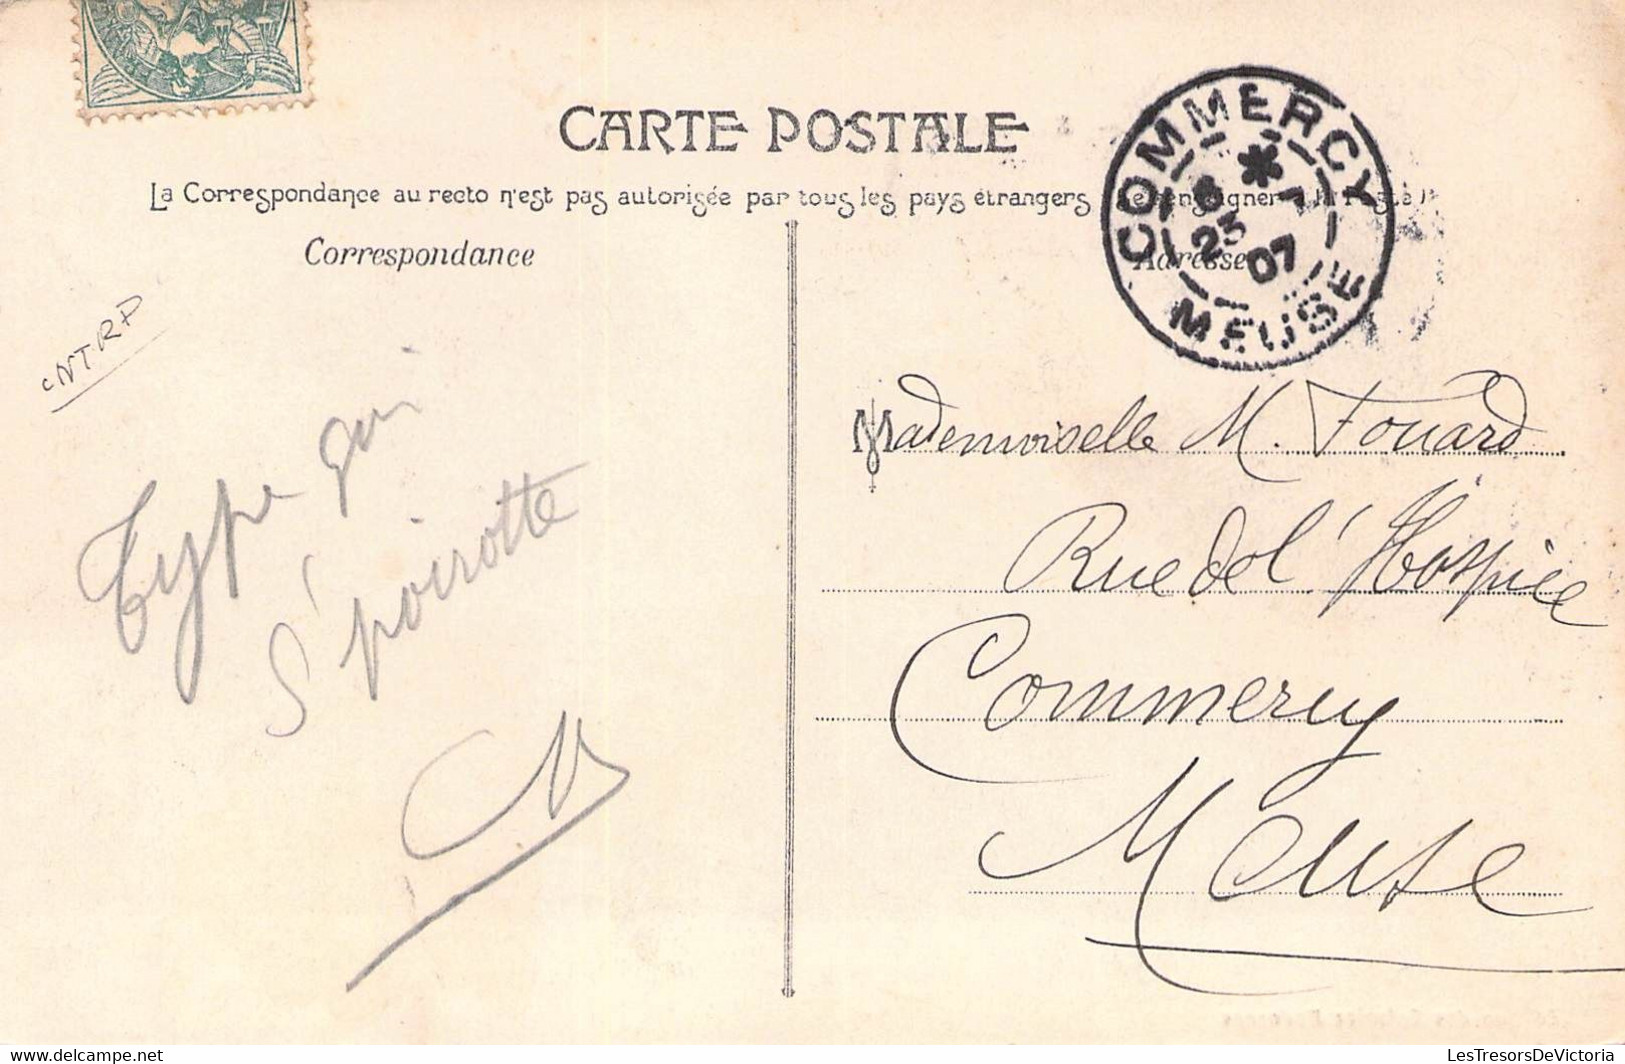 CARTE POSTALE
La Correspondance au recto n'est pas autorisée par tous les pays étrangers (Se renseigner à la Poste)
Correspondance
Adresse
COMMERCY
8 * 7
25 07
MEUSE
CNTRP
Type qui
s'poirotte
Mademoiselle M. Fouard
Rue de l'Hospice
Commercy
Meuse
LesTresorsDeVictoria